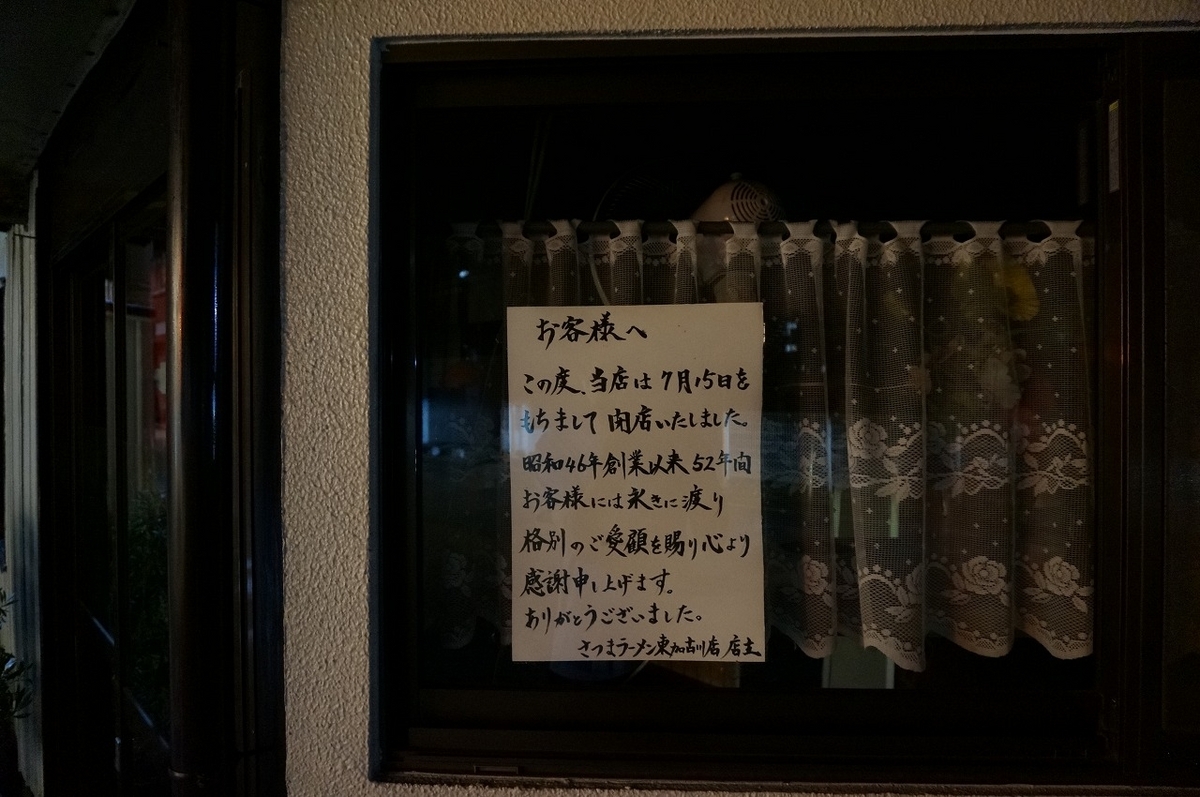 お客様へ
この度、当店は7月15日を
もちまして閉店いたしました。
昭和46年創業以来52年間
お客様には永きに渡り
格別のご愛顧を賜り心より
感謝申し上げます。
ありがとうございました。
さつまラーメン東加古川店 店主